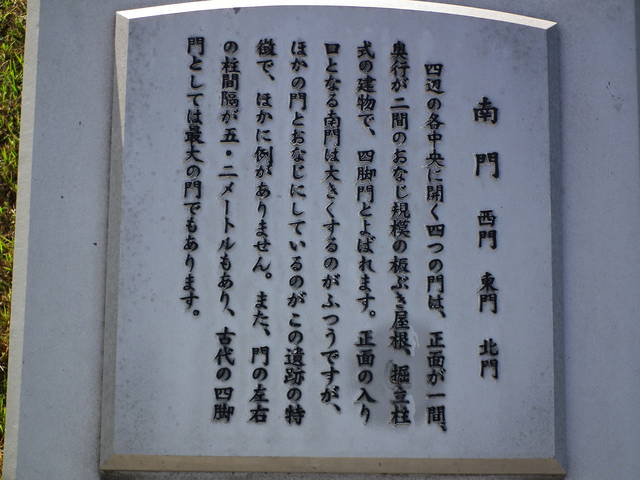 南門 西門 東門 北門
四辺の各中央に開く四つの門は、正面が一間、
奥行が二間のおなじ規模の板ぶき屋根、掘立柱
式の建物で、四脚門とよばれます。正面の入り
口となる南門は大きくするのがふつうですが、
ほかの門とおなじにしているのがこの遺跡の特
徴で、ほかに例がありません。また、門の左右
の柱間隔が五・二メートルもあり、古代の四脚
門としては最大の門でもあります。